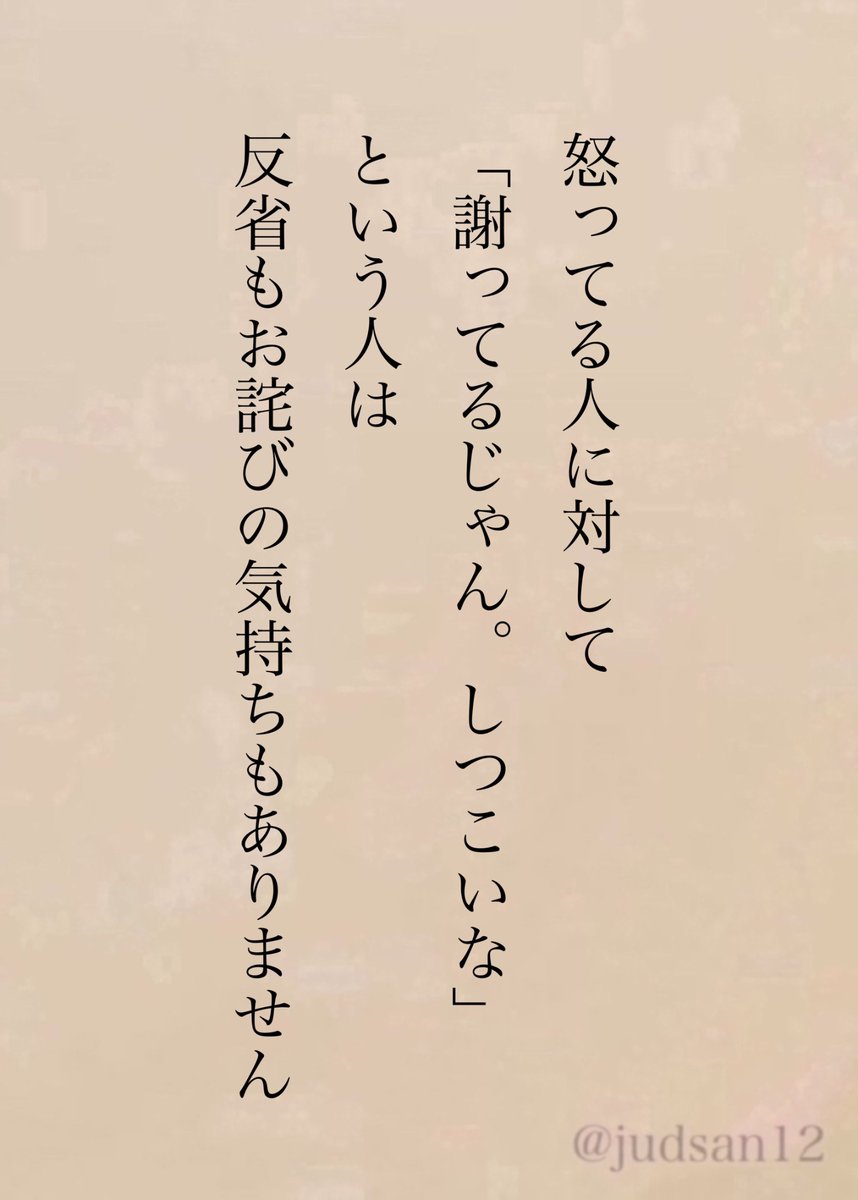 怒ってる人に対して
「謝ってるじゃん。しつこいな」
という人は
反省もお詫びの気持ちもありません
@judsan12